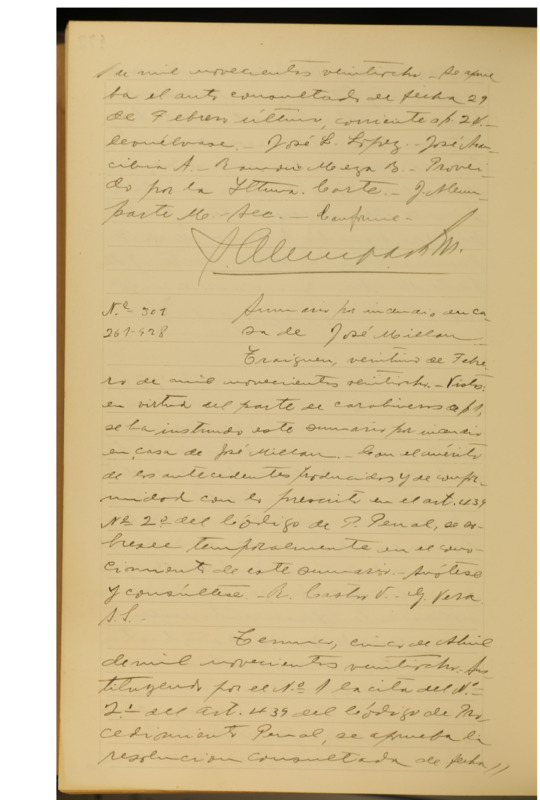 de mil novecientos veintiocho. - Se aprue
ba el auto consultado de fecha 29
de Febrero último, corriente a f. 2 v. -
Devuélvase. - José L. López - José Aran
cibia A. - Ramón Meza B. - Provei
do por la Iltma. Corte. - J. Alem
parte M. - Sec. - Conforme -
J. Alemparte M.
N.º 301
261-928
Sumario por incendio en ca
sa de José Millan
Traiguen, veintiuno de Febre
ro de mil novecientos veintiocho. - Vistos:
en virtud del parte de carabineros de f 1,
se ha instruido este sumario por incendio
en casa de José Millan. - Con el mérito
de los antecedentes producidos y de confor
midad con lo prescrito en el art. 439
N.º 2º del Código de P. Penal, se so
bresee temporalmente en el cono
cimiento de este sumario. - Anótese
y consúltese. - R. Castro V. - G. Vera
S.S. -
Temuco, cinco de Abril
de mil novecientos veintiocho. Sus
tituyendo por el Nº 1 la cita del Nº
2º del art. 439 del Código de Pro
cedimiento Penal, se aprueba la
resolucion consultada de fecha